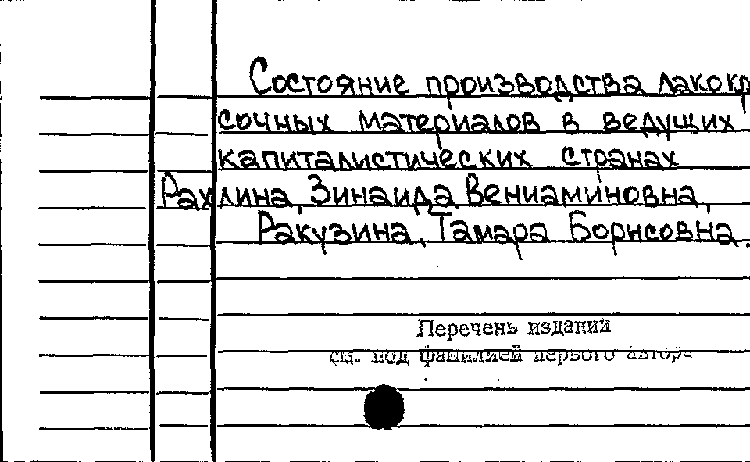 Состояние производства лакокр
сочных материалов в ведущих
капиталистических странах
Рахлина, Зинаида Вениаминовна,
Ракузина, Тамара Борисовна.
Перечень изданий
см. под фамилией первого автора